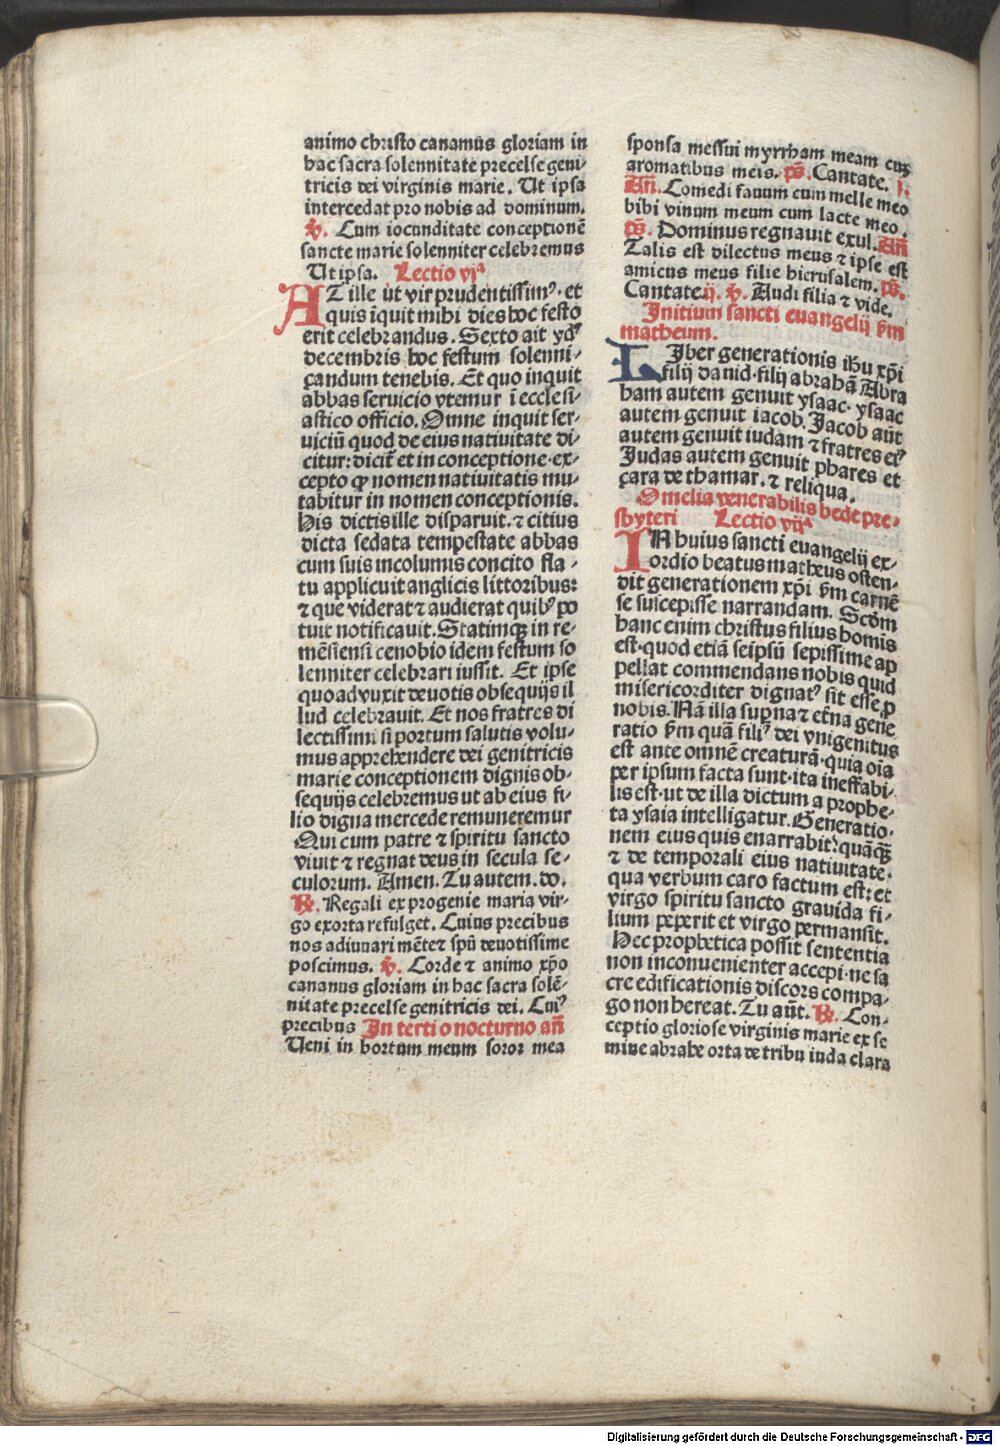 animo christo canamus gloriam in
hac sacra solennitate precelse geni-
tricis dei virginis marie. Ut ipsa
intercedat pro nobis ad dominum.
℣. Cum iocunditate conceptionē
sancte marie solenniter celebremus
Ut ipsa. Lectio vjᵃ
AT ille ut vir prudentissimꝰ. et
quis īquit mihi dies hoc festo
erit celebrandus. Sexto ait ydꝰ
decembris hoc festum solenni-
çandum tenebis. Et quo inquit
abbas servicio vtemur ī ecclesi-
astico officio. Omne inquit ser-
viciū quod de eius nativitate di-
citur: dicit̄ et in conceptione. ex-
cepto ꝙ nomen nativitatis mu-
tabitur in nomen conceptionis.
His dictis ille disparuit. ⁊ citius
dicta sedata tempestate abbas
cum suis incolumis concito fla-
tu applicuit anglicis littoribus:
⁊ que viderat ⁊ audierat quibꝰ po
tuit notificauit. Statimqꝫ in re-
mēsiensi cenobio idem festum so
lenniter celebrari iussit. Et ipse
quoad vixit deuotis obsequijs il
lud celebrauit. Et nos fratres di
lectissimi si portum salutis volu-
mus apprehendere dei genitricis
marie conceptionem dignis ob-
sequijs celebremus ut ab eius fi-
lio digna mercede remuneremur
Qui cum patre ⁊ spiritu sancto
viuit ⁊ regnat deus in secula se-
culorum. Amen. Tu autem. do.
℟. Regali ex progenie maria vir-
go exorta refulget. Cuius precibus
nos adiuuari mēte ⁊ spū deuotissime
poscimus. ℣. Corde ⁊ animo xp̄o
cananus gloriam in hac sacra solē-
nitate precelse genitricis dei. Cuiꝰ
precibus In tertio nocturno an̄
Veni in hortum meum soror mea
sponsa messui myrrham meam cuꝫ
aromatibus meis. p̄s. Cantate. j.
An̄. Comedi fauum cum melle meo
bibi vinum meum cum lacte meo.
p̄s. Dominus regnauit exul. An̄
Talis est dilectus meus ⁊ ipse est
amicus meus filie hierusalem. p̄s.
Cantate. ij. ℣. Audi filia ⁊ vide.
Initium sancti euangelij s̄m
matheum.
LIber generationis ihū xp̄i
filij dauid. filij abrahā Abra
ham autem genuit ysaac. ysaac
autem genuit iacob. Jacob aūt
autem genuit iudam ⁊ fratres eiꝰ
Judas autem genuit phares et
çara de thamar. ⁊ reliqua.
Omelia venerabilis bede pre-
sbyteri Lectio vijᵃ
IN huius sancti euangelij ex-
ordio beatus matheus osten-
dit generationem xp̄i s̄m carnē
se suscepisse narrandam. Scd̄m
hanc enim christus filius homīs
est. quod etiā seipsū sepissime ap
pellat commendans nobis quid
misericorditer dignatꝰ sit esse ꝓ
nobis. Nā illa sup̄na ⁊ et̄na gene
ratio s̄m quā filiꝰ dei vnigenitus
est ante omnē creaturā. quia oīa
per ipsum facta sunt. ita ineffabi-
lis est. ut de illa dictum a prophe-
ta ysaia intelligatur. Generatio-
nem eius quis enarrabit? quāqꝫ
⁊ de temporali eius natiuitate.
qua verbum caro factum est: et
virgo spiritu sancto grauida fi-
lium peperit et virgo permansit.
Hec prophetica possit sententia
non inconuenienter accepi. ne sa
cre edificationis discors compa-
go non hereat. Tu aūt. ℟. Con-
ceptio gloriose virginis marie ex se
mine abrahe orta de tribu iuda clara
Digitalisierung gefördert durch die Deutsche Forschungsgemeinschaft - DFG